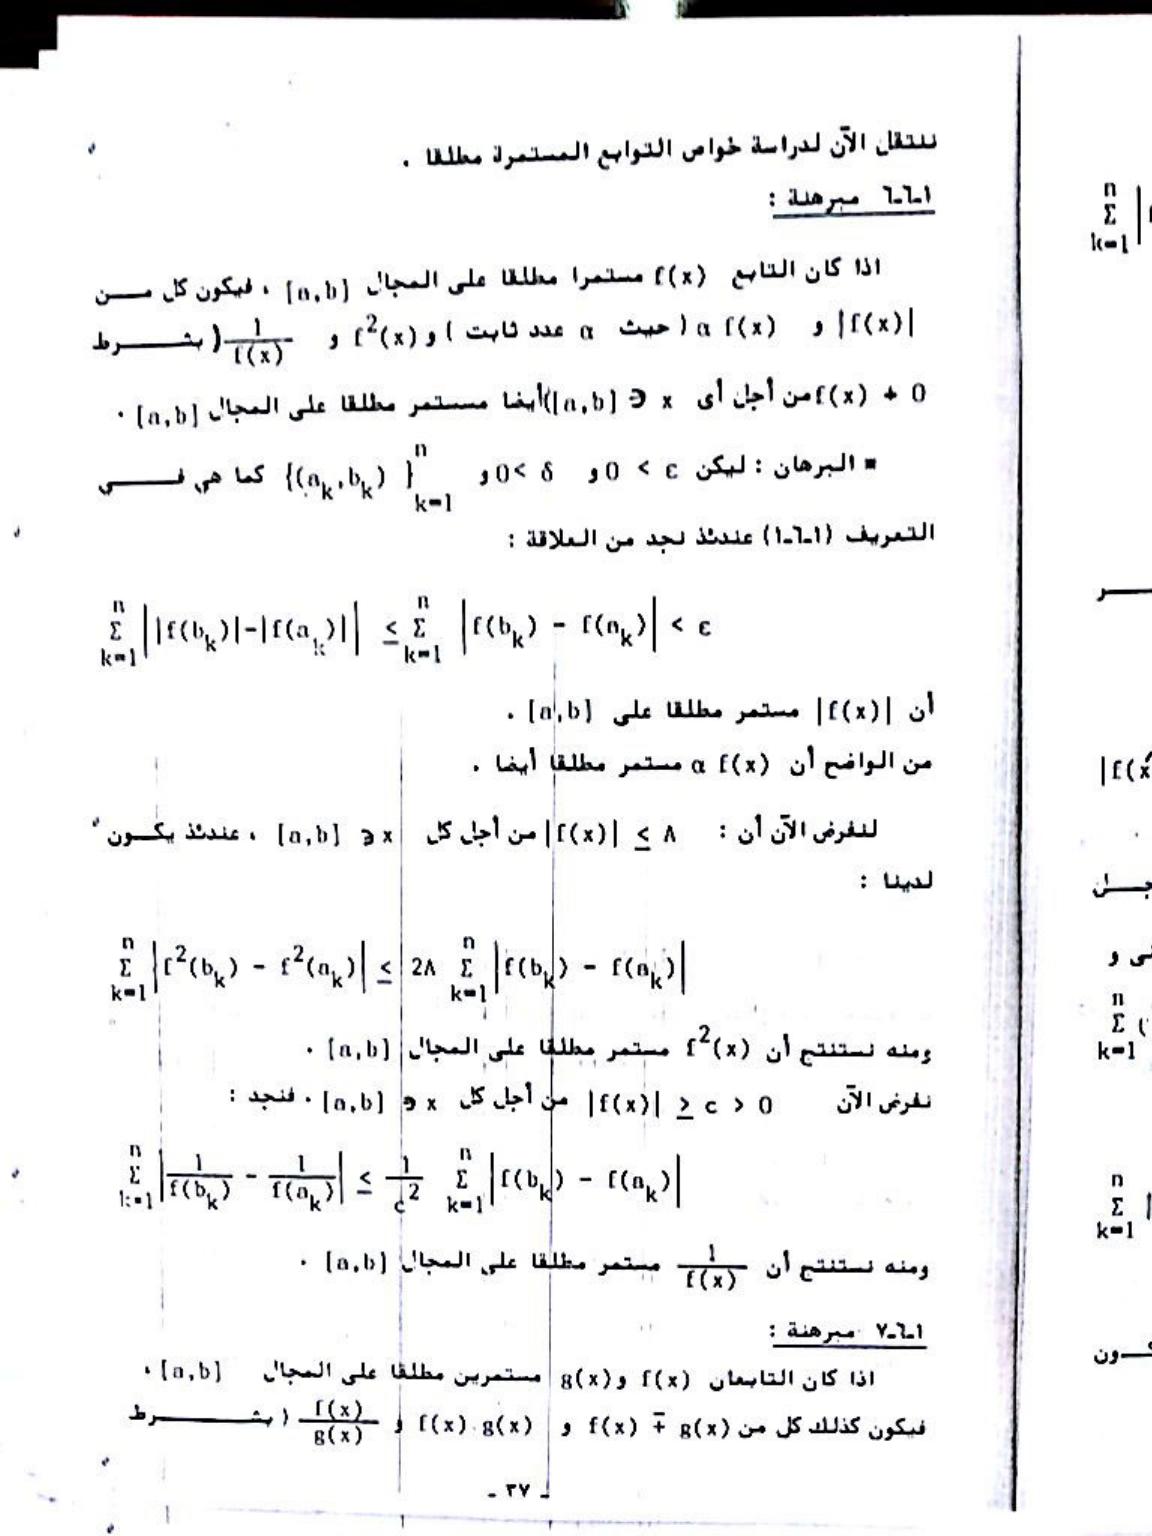 ننتقل الآن لدراسة خواص التوابع المستمرة مطلقا .
٦-٦-١ مبرهنة :
اذا كان التابع f(x) مستمرا مطلقا على المجال [a,b] ، فيكون كل مـــن
|f(x)| و α f(x) (حيث α عدد ثابت ) و f²(x) و 1/f(x) ( بشـــرط
f(x) ≠ 0 من أجل أى x ∈ [a,b]) أيضا مسستمر مطلقا على المجال [a,b] .
▪ البرهان : ليكن ε > 0 و δ > 0 و {(a_k,b_k)}_{k=1}^{n} كما هي فـــي
التعريف (١-٦-١) عندئذ نجد من العلاقة :
Σ_{k=1}^{n} ||f(b_k)|-|f(a_k)|| ≤ Σ_{k=1}^{n} |f(b_k) - f(a_k)| < ε
أن |f(x)| مستمر مطلقا على [a,b] .
من الواضح أن α f(x) مستمر مطلقا أيضا .
لنفرض الآن أن : |f(x)| ≤ A من أجل كل x ∈ [a,b] ، عندئذ يكـون
لدينا :
Σ_{k=1}^{n} |f²(b_k) - f²(a_k)| ≤ 2A Σ_{k=1}^{n} |f(b_k) - f(a_k)|
ومنه نستنتج أن f²(x) مستمر مطلقا على المجال [a,b] .
نفرض الآن |f(x)| ≥ c > 0 من أجل كل x ∈ [a,b] . فنجد :
Σ_{k=1}^{n} |1/f(b_k) - 1/f(a_k)| ≤ 1/c² Σ_{k=1}^{n} |f(b_k) - f(a_k)|
ومنه نستنتج أن 1/f(x) مستمر مطلقا على المجال [a,b] .
٧-٦-١ مبرهنة :
اذا كان التابعان f(x) و g(x) مستمرين مطلقا على المجال [a,b] ،
فيكون كذلك كل من f(x) ∓ g(x) و f(x).g(x) و f(x)/g(x) ( بشـــرط
- ٣٧ -